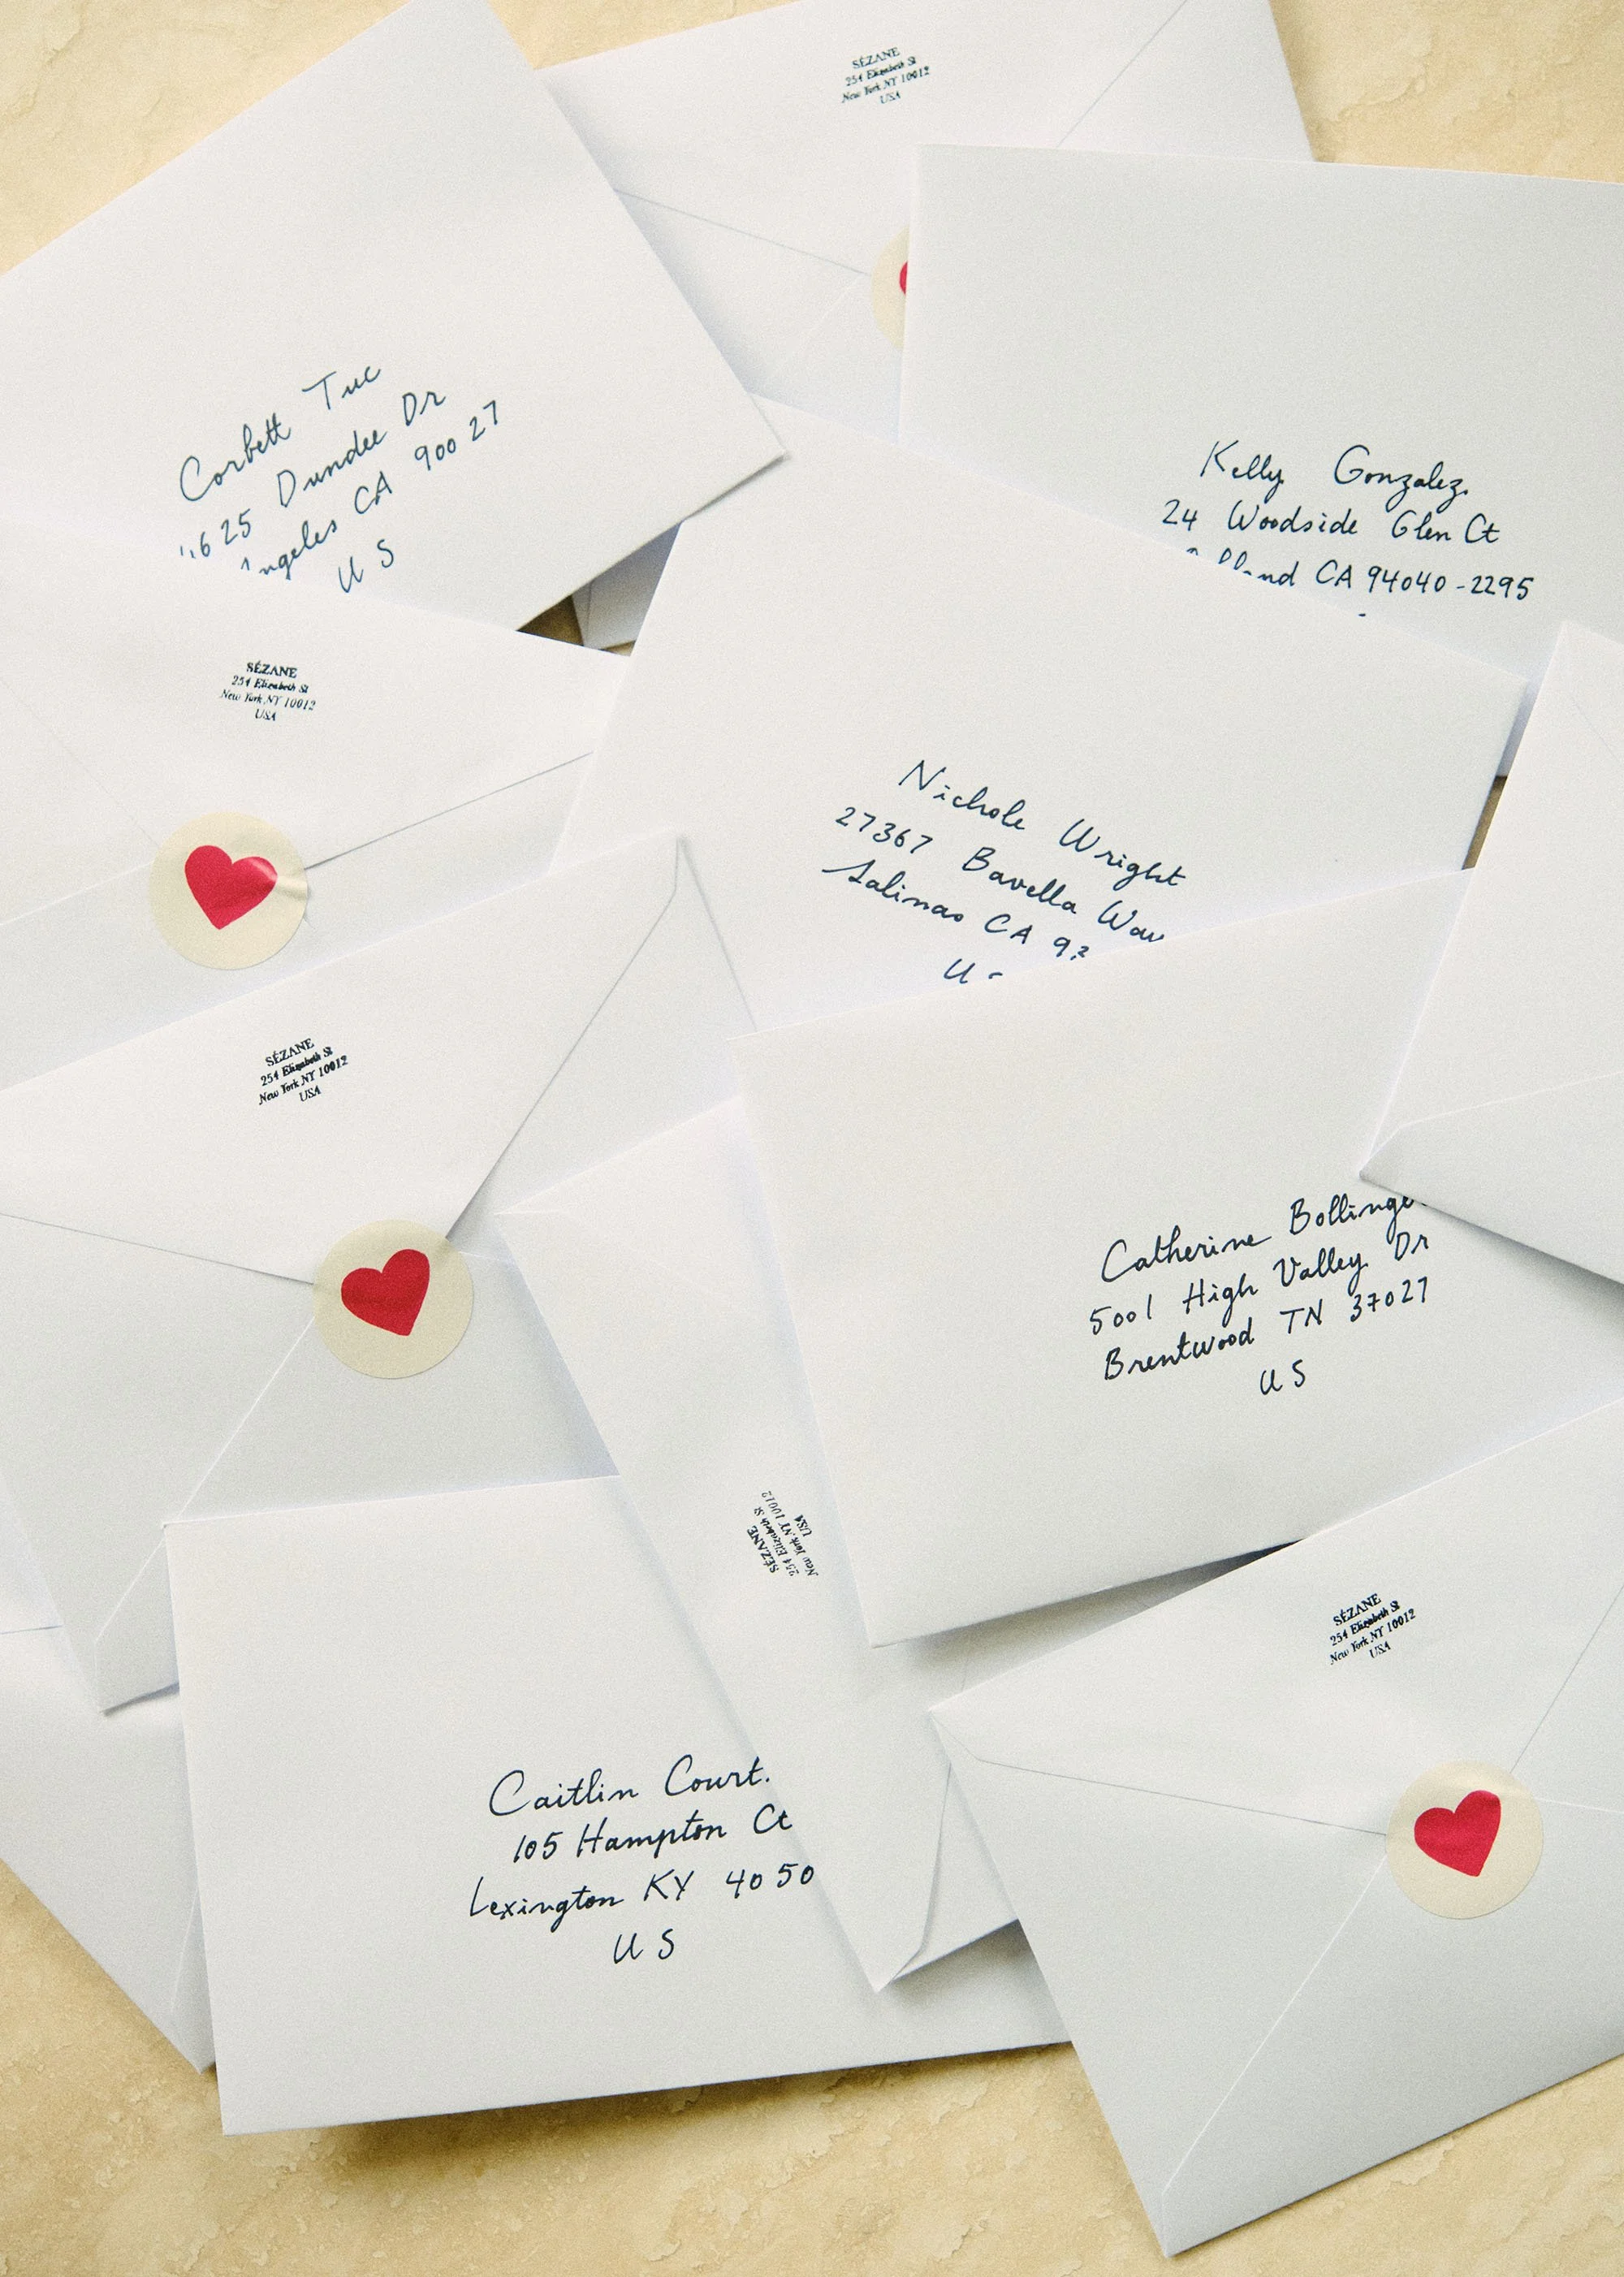 SÉZANE
254 Elizabeth St
New York NY 10012
USA
Corbett Tuc
625 Dundee Dr
CA 90027
US
Kelly Gonzalez
24 Woodside Glen Ct
CA 94040-2295
SÉZANE
254 Elizabeth St
New York NY 10012
USA
Nichole Wright
27367 Bavella
Salinas CA
U
SÉZANE
254 Elizabeth St
New York NY 10012
USA
Catherine
5001 High Valley Dr
Brentwood TN 37027
US
SÉZANE
254 Elizabeth St
New York NY 10012
USA
SÉZANE
254 Elizabeth St
New York NY 10012
USA
Caitlin Court
105 Hampton Ct
Lexington KY 4050
US